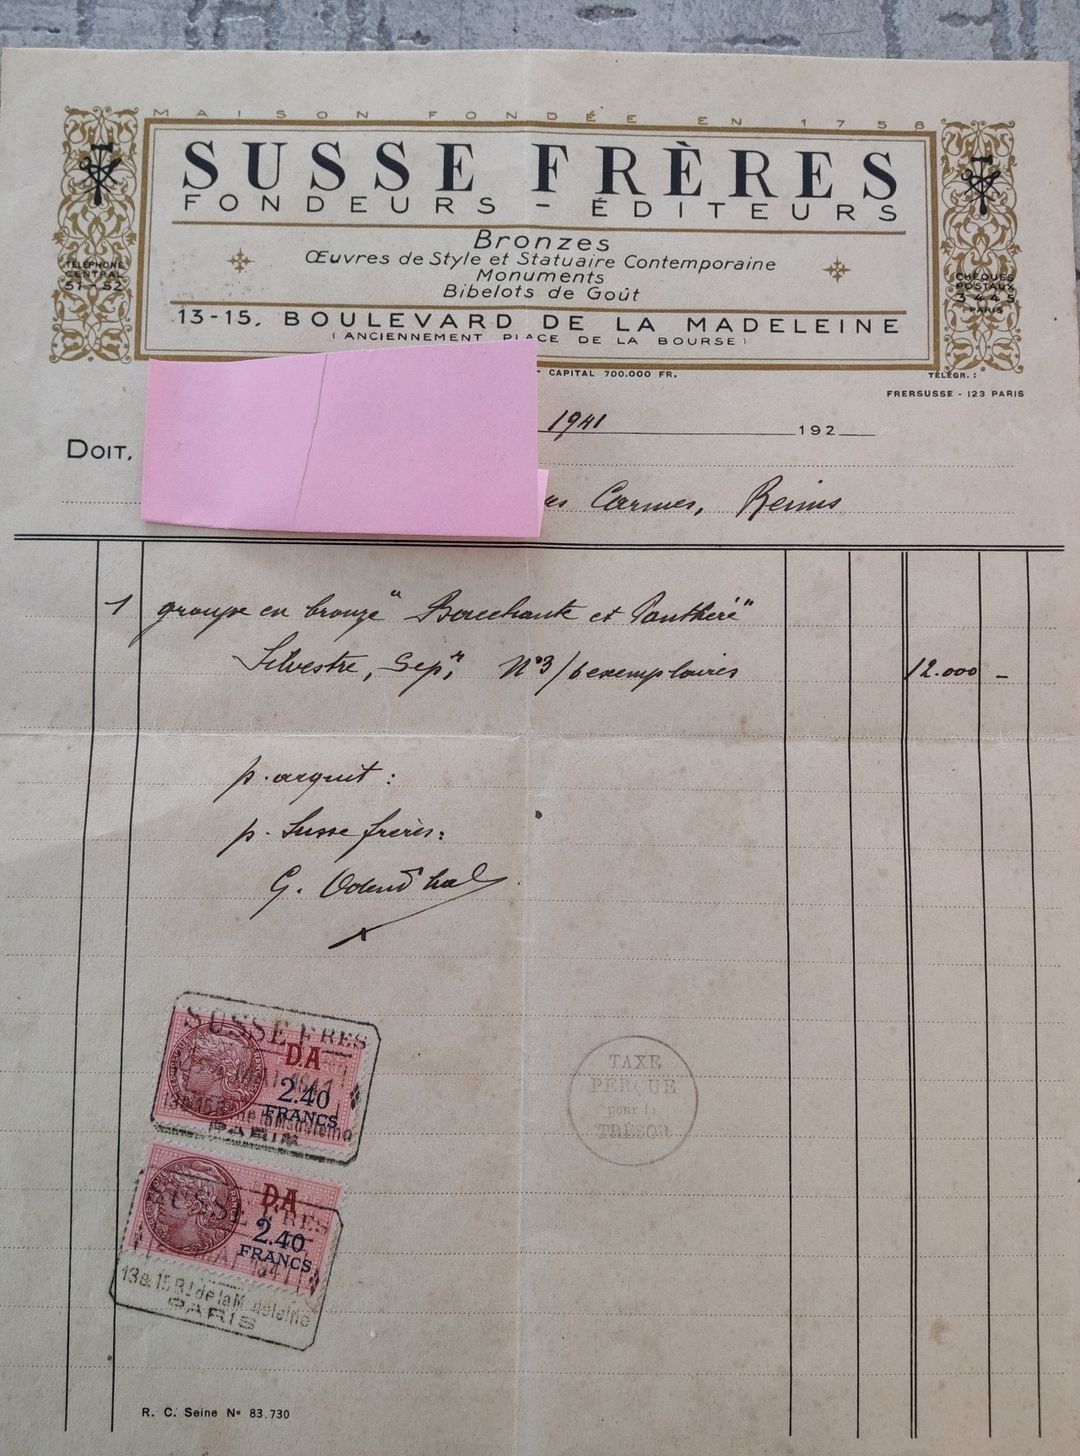 MAISON FONDÉE EN 1758
SUSSE FRÈRES
FONDEURS - ÉDITEURS
Bronzes
Œuvres de Style et Statuaire Contemporaine
Monuments
Bibelots de Goût
13-15, BOULEVARD DE LA MADELEINE
(ANCIENNEMENT PLACE DE LA BOURSE)
TÉLÉPHONE
CENTRAL
51-52
CHÈQUES
POSTAUX
3445
PARIS
CAPITAL 700.000 FR.
TÉLÉGR. :
FRERSUSSE - 123 PARIS
1941 192
DOIT,
Carmes, Reims
1 groupe en bronze "Bacchante et Panthère"
Silvestre, Scpr, N°3/6 exemplaires 12.000 -
p. acquit :
p. Susse frères :
G. Odendhal
SUSSE FRES
DA
2.40
FRANCS
MAI 1941
13&15 Bd de la Madeleine
PARIS
TAXE
PERÇUE
pour le
TRÉSOR
SUSSE FRES
DA
2.40
FRANCS
MAI 1941
13&15 Bd de la Madeleine
PARIS
R. C. Seine No 83.730